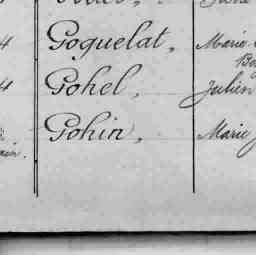 4 Goguelat, Marie
4 Gohel, Julien
Gohin, Marie